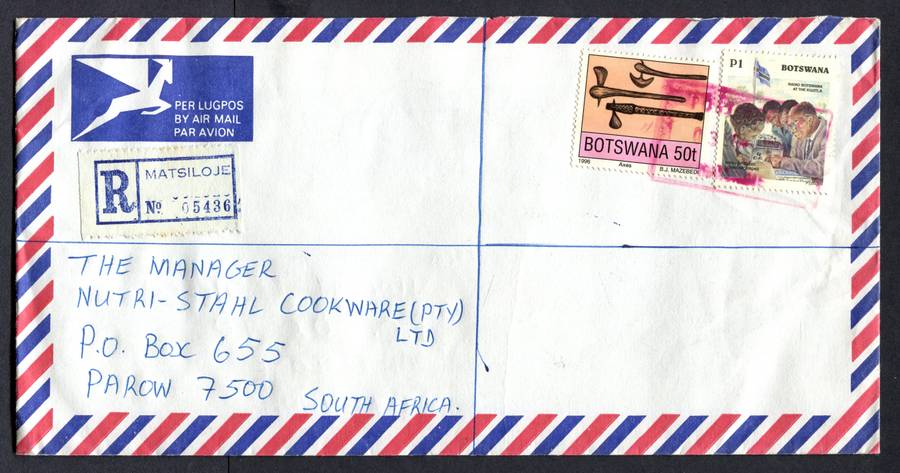 PER LUGPOS
BY AIR MAIL
PAR AVION
R MATSILOJE
No 05436
BOTSWANA 50t
1996 Axes B.J. MAZEBEDI
P1 BOTSWANA
RADIO BOTSWANA
AT THE KGOTLA
THE MANAGER
NUTRI-STAHL COOKWARE (PTY)
LTD
P.O. BOX 655
PAROW 7500
SOUTH AFRICA.